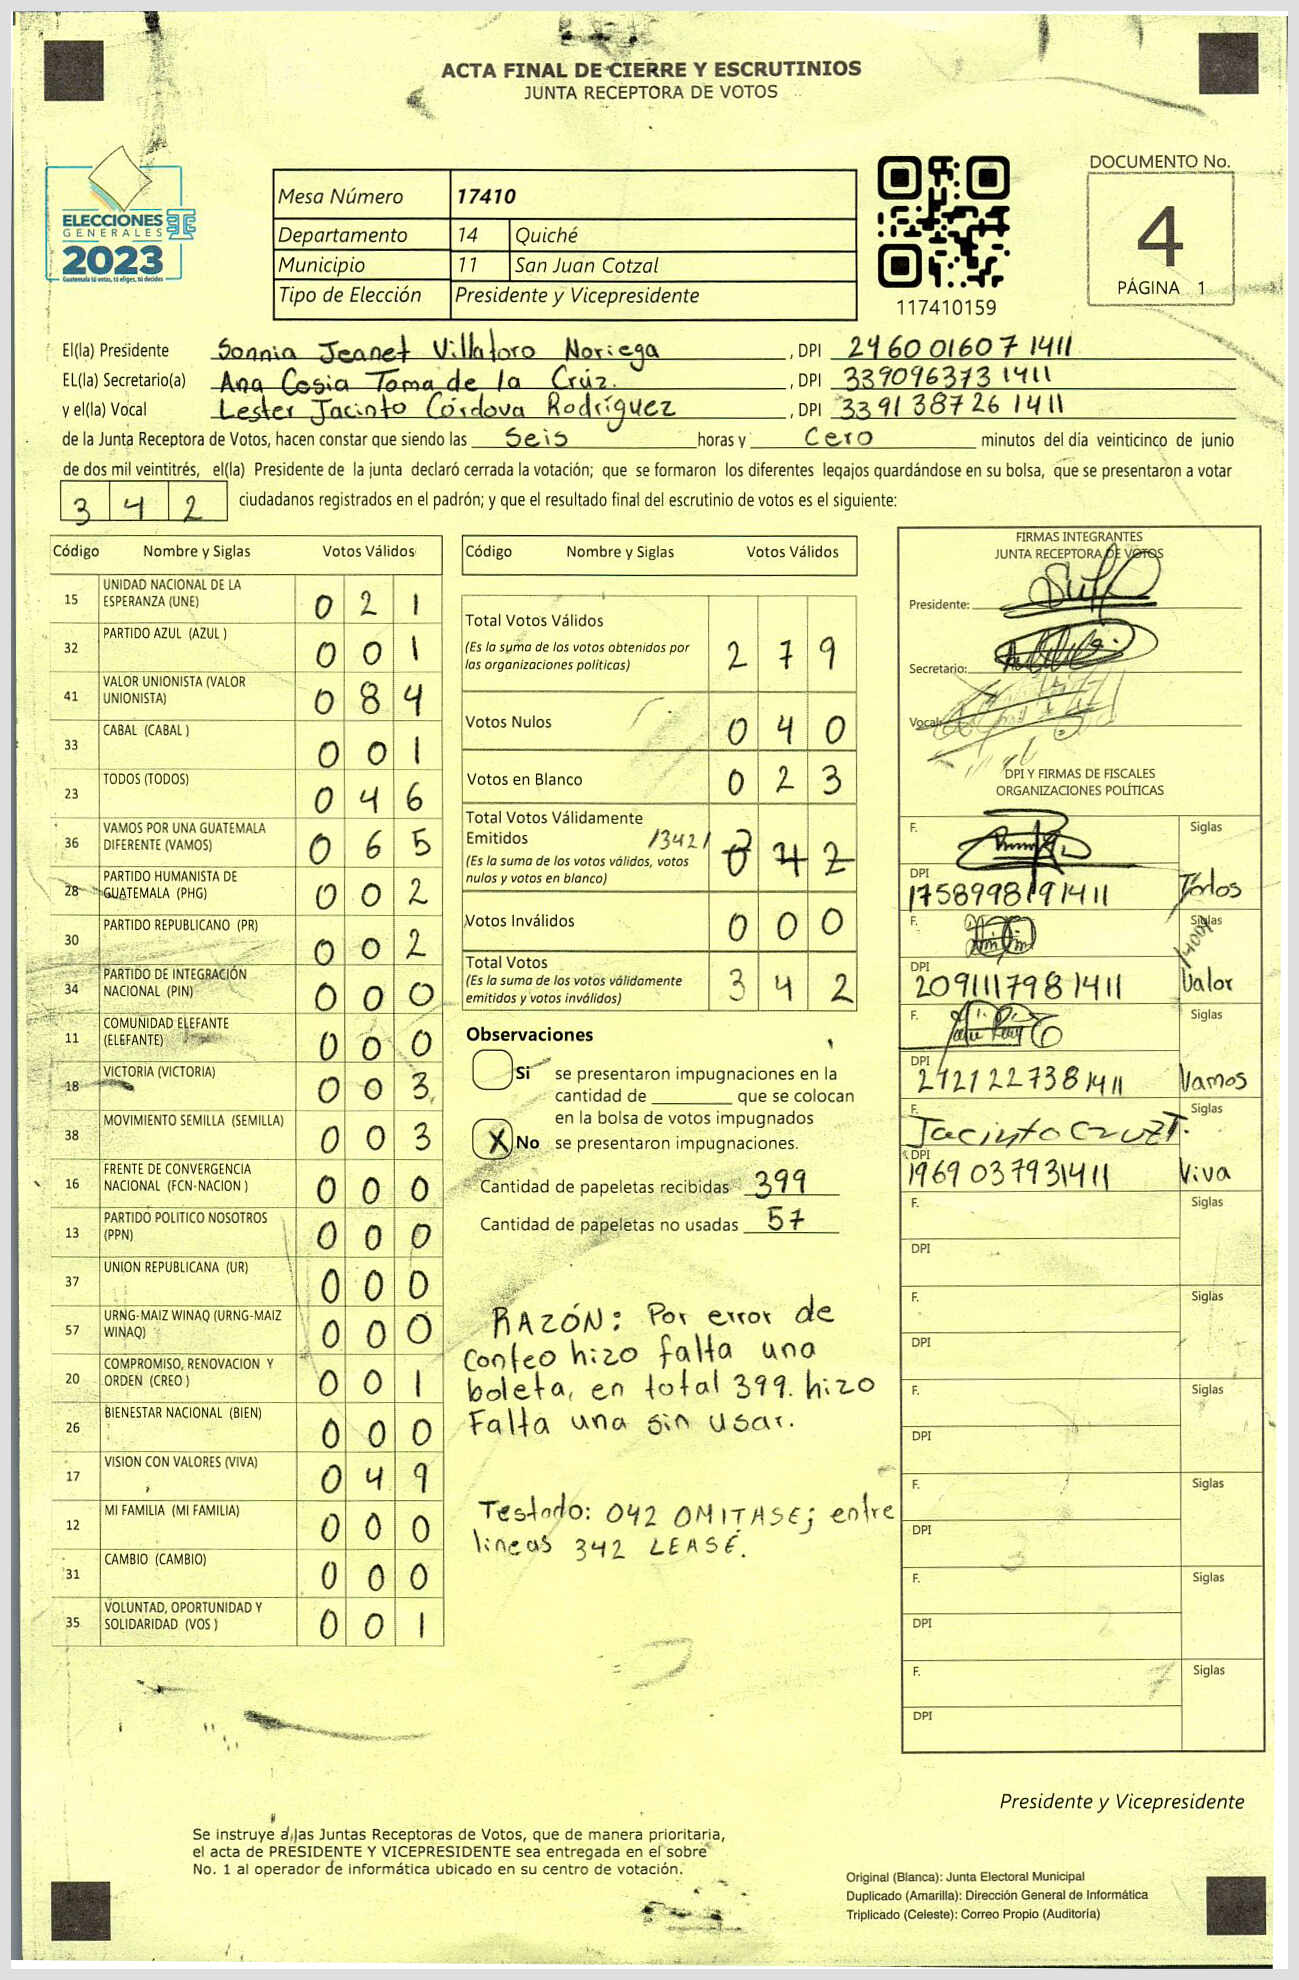 ACTA FINAL DE CIERRE Y ESCRUTINIOS
JUNTA RECEPTORA DE VOTOS
ELECCIONES
GENERALES
2023
Guatemala tú votas, tú eliges, tú decides
Mesa Número 17410
Departamento 14 Quiché
Municipio 11 San Juan Cotzal
Tipo de Elección Presidente y Vicepresidente
117410159
DOCUMENTO No.
4
PÁGINA 1
El(la) Presidente Sonnia Jeanet Villatoro Noriega , DPI 2460 01607 1411
EL(la) Secretario(a) Ana Cosia Toma de la Cruz. , DPI 339096373 1411
y el(la) Vocal Lester Jacinto Córdova Rodríguez , DPI 3391 38726 1411
de la Junta Receptora de Votos, hacen constar que siendo las Seis horas y Cero minutos del día veinticinco de junio
de dos mil veintitrés, el(la) Presidente de la junta declaró cerrada la votación; que se formaron los diferentes legajos guardándose en su bolsa, que se presentaron a votar
3 4 2 ciudadanos registrados en el padrón; y que el resultado final del escrutinio de votos es el siguiente:
Código Nombre y Siglas Votos Válidos
15 UNIDAD NACIONAL DE LA ESPERANZA (UNE) 0 2 1
32 PARTIDO AZUL (AZUL ) 0 0 1
41 VALOR UNIONISTA (VALOR UNIONISTA) 0 8 4
33 CABAL (CABAL ) 0 0 1
23 TODOS (TODOS) 0 4 6
36 VAMOS POR UNA GUATEMALA DIFERENTE (VAMOS) 0 6 5
28 PARTIDO HUMANISTA DE GUATEMALA (PHG) 0 0 2
30 PARTIDO REPUBLICANO (PR) 0 0 2
34 PARTIDO DE INTEGRACIÓN NACIONAL (PIN) 0 0 0
11 COMUNIDAD ELEFANTE (ELEFANTE) 0 0 0
18 VICTORIA (VICTORIA) 0 0 3
38 MOVIMIENTO SEMILLA (SEMILLA) 0 0 3
16 FRENTE DE CONVERGENCIA NACIONAL (FCN-NACION ) 0 0 0
13 PARTIDO POLITICO NOSOTROS (PPN) 0 0 0
37 UNION REPUBLICANA (UR) 0 0 0
57 URNG-MAIZ WINAQ (URNG-MAIZ WINAQ) 0 0 0
20 COMPROMISO, RENOVACION Y ORDEN (CREO ) 0 0 1
26 BIENESTAR NACIONAL (BIEN) 0 0 0
17 VISION CON VALORES (VIVA) 0 4 9
12 MI FAMILIA (MI FAMILIA) 0 0 0
31 CAMBIO (CAMBIO) 0 0 0
35 VOLUNTAD, OPORTUNIDAD Y SOLIDARIDAD (VOS ) 0 0 1
Código Nombre y Siglas Votos Válidos
Total Votos Válidos
(Es la suma de los votos obtenidos por las organizaciones políticas) 2 7 9
Votos Nulos 0 4 0
Votos en Blanco 0 2 3
Total Votos Válidamente Emitidos /342/ 0 4 2
(Es la suma de los votos válidos, votos nulos y votos en blanco)
Votos Inválidos 0 0 0
Total Votos
(Es la suma de los votos válidamente emitidos y votos inválidos) 3 4 2
Observaciones
Si se presentaron impugnaciones en la
cantidad de ________ que se colocan
en la bolsa de votos impugnados
X No se presentaron impugnaciones.
Cantidad de papeletas recibidas 399
Cantidad de papeletas no usadas 57
RAZÓN: Por error de
conteo hizo falta una
boleta, en total 399. hizo
Falta una sin usar.
Testado: 042 OMITASE; entre
lineas 342 LEASE.
FIRMAS INTEGRANTES
JUNTA RECEPTORA DE VOTOS
Presidente:
Secretario:
Vocal:
DPI Y FIRMAS DE FISCALES
ORGANIZACIONES POLÍTICAS
F. Siglas
DPI
1758998191411 Todos
F. Siglas
DPI
2091117981411 Valor
F. Siglas
DPI
2421227381411 Vamos
F. Jacinto Cruz T. Siglas
DPI
1969037931411 Viva
F. Siglas
DPI
F. Siglas
DPI
F. Siglas
DPI
F. Siglas
DPI
F. Siglas
DPI
F. Siglas
DPI
Presidente y Vicepresidente
Se instruye a las Juntas Receptoras de Votos, que de manera prioritaria,
el acta de PRESIDENTE Y VICEPRESIDENTE sea entregada en el sobre
No. 1 al operador de informática ubicado en su centro de votación.
Original (Blanca): Junta Electoral Municipal
Duplicado (Amarilla): Dirección General de Informática
Triplicado (Celeste): Correo Propio (Auditoría)